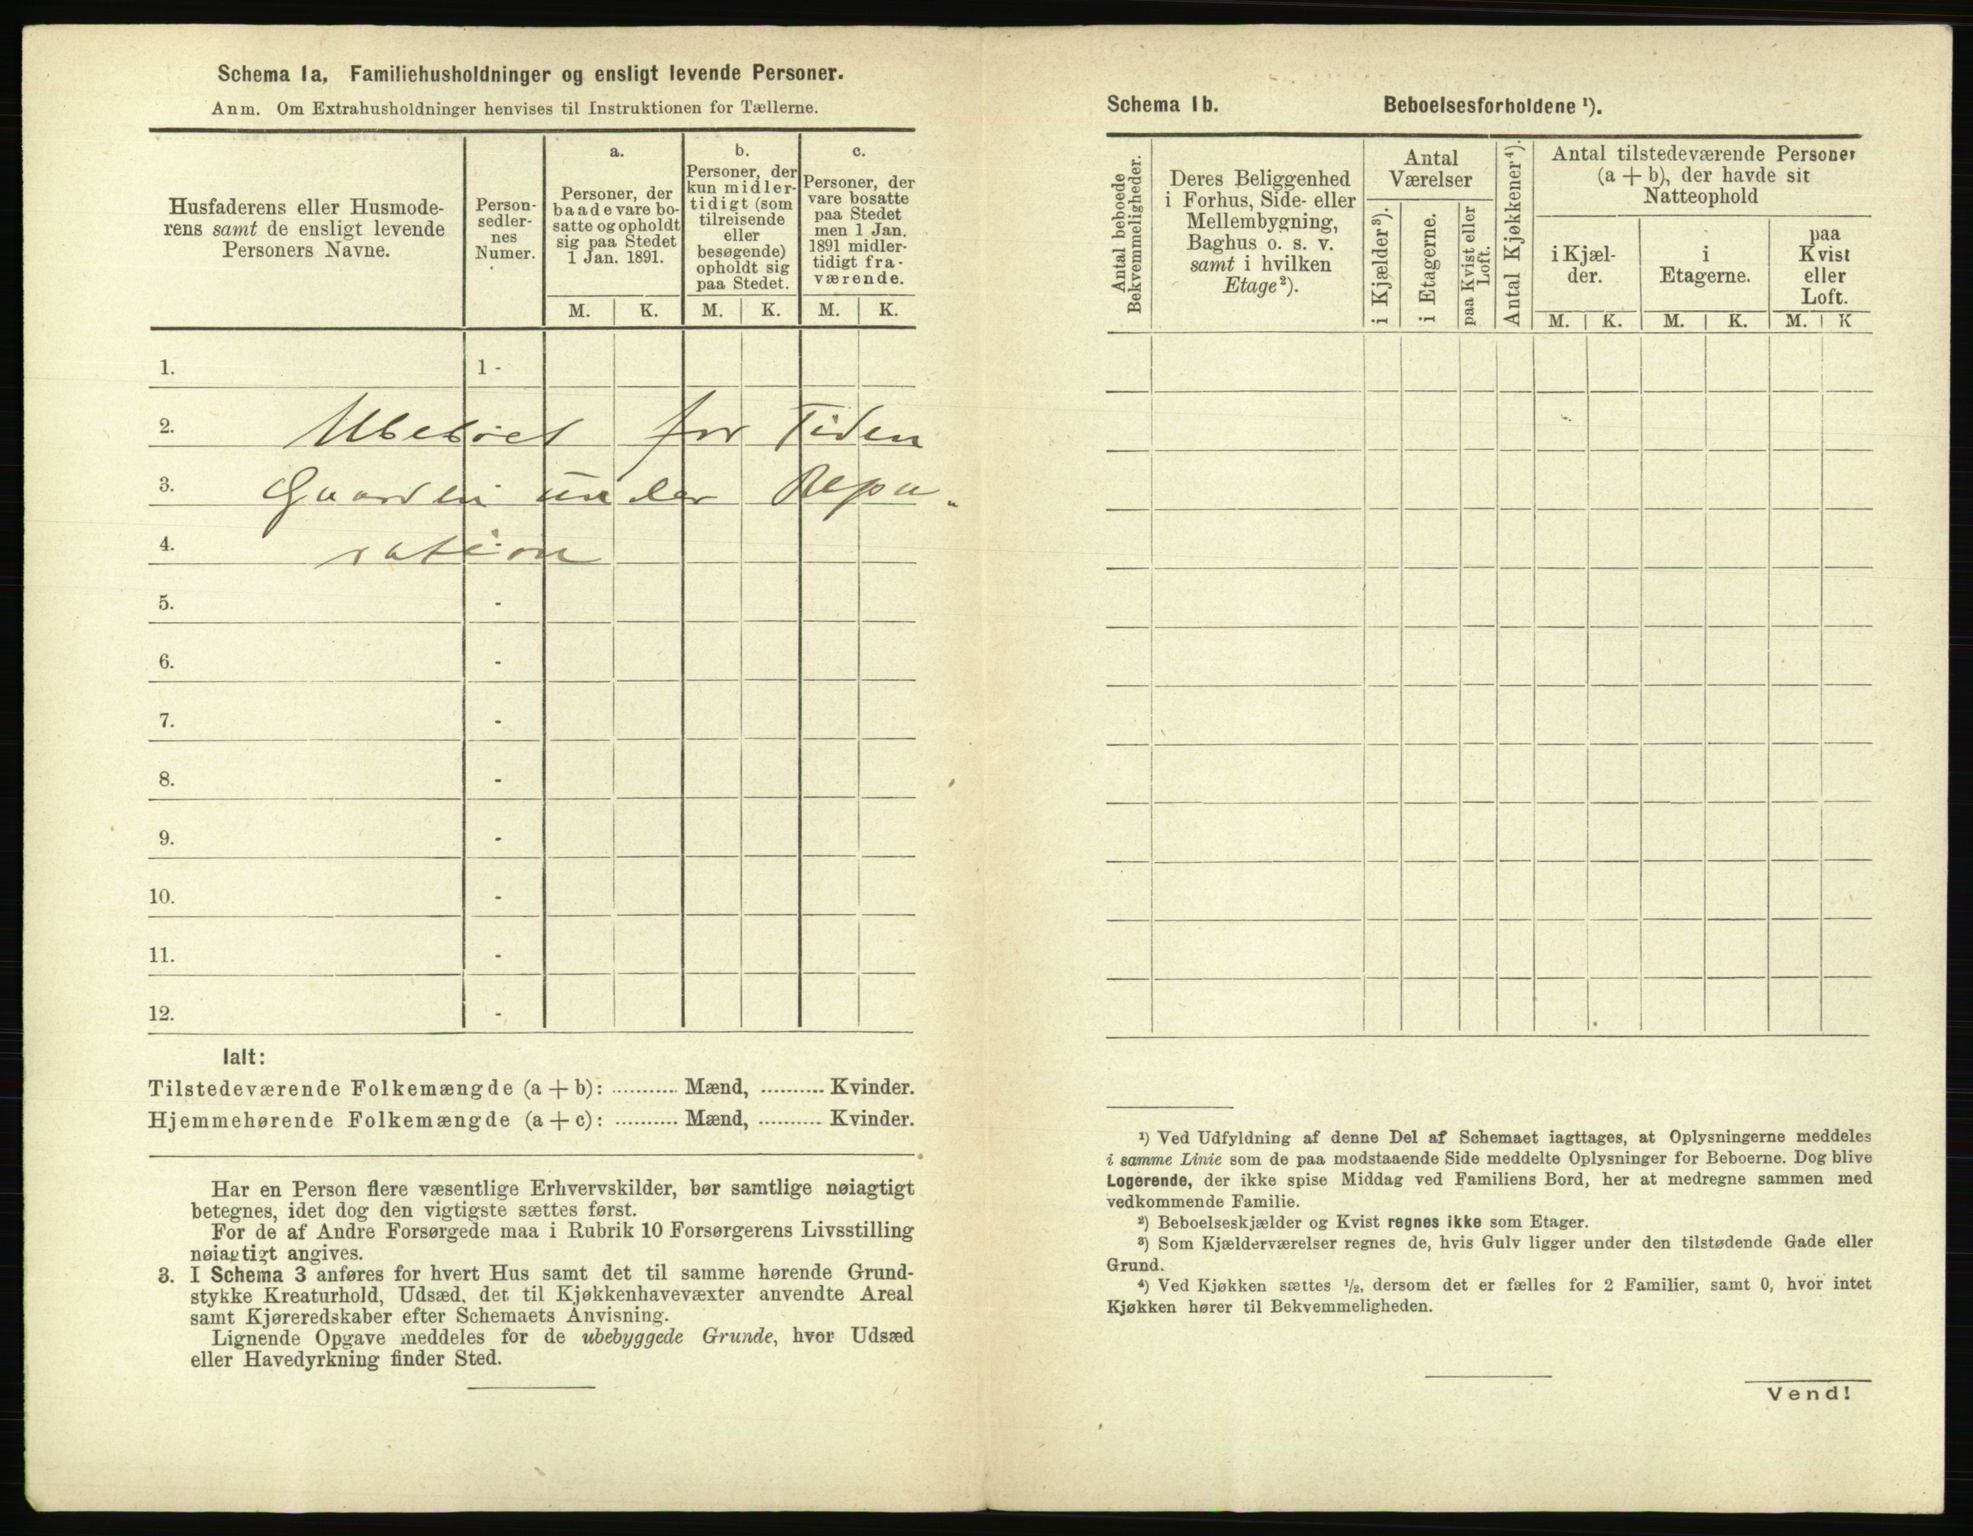 Schema 1a, Familiehusholdninger og ensligt levende Personer.
Anm. Om Extrahusholdninger henvises til Instruktionen for Tællerne.
Husfaderens eller Husmode-
rens samt de ensligt levende
Personers Navne.
Person-
sedler-
nes
Numer.
a.
Personer, der
baade vare bo-
satte og opholdt
sig paa Stedet
1 Jan. 1891.
b.
Personer, der
kun midler-
tidigt (som
tilreisende
eller
besøgende)
opholdt sig
paa Stedet.
c.
Personer, der
vare bosatte
paa Stedet
men 1 Jan.
1891 midler-
tidigt fra-
værende.
M. K. M. K. M. K.
1. 1 -
2. Ubeboet for Tiden
3. Gaarden under Repa-
4. ration
5. -
6. -
7. -
8. -
9. -
10. -
11. -
12. -
Ialt:
Tilstedeværende Folkemængde (a + b): ........... Mænd, .......... Kvinder.
Hjemmehørende Folkemængde (a + c): .......... Mænd, .......... Kvinder.
Har en Person flere væsentlige Erhvervskilder, bør samtlige nøiagtigt
betegnes, idet dog den vigtigste sættes først.
For de af Andre Forsørgede maa i Rubrik 10 Forsørgerens Livsstilling
nøiagtigt angives.
3. I Schema 3 anføres for hvert Hus samt det til samme hørende Grund-
stykke Kreaturhold, Udsæd, det til Kjøkkenhavevæxter anvendte Areal
samt Kjøreredskaber efter Schemaets Anvisning.
Lignende Opgave meddeles for de ubebyggede Grunde, hvor Udsæd
eller Havedyrkning finder Sted.
Schema 1b. Beboelsesforholdene ¹).
Antal beboede
Bekvemmeligheder.
Deres Beliggenhed
i Forhus, Side- eller
Mellembygning,
Baghus o. s. v.
samt i hvilken
Etage ²).
Antal
Værelser
i Kjælder ³).
i Etagerne.
paa Kvist eller
Loft.
Antal Kjøkkener ⁴).
Antal tilstedeværende Personer
(a + b), der havde sit
Natteophold
i Kjæl-
der.
i
Etagerne.
paa
Kvist
eller
Loft.
M. K. M. K. M. K
¹) Ved Udfyldning af denne Del af Schemaet iagttages, at Oplysningerne meddeles
i samme Linie som de paa modstaaende Side meddelte Oplysninger for Beboerne. Dog blive
Logerende, der ikke spise Middag ved Familiens Bord, her at medregne sammen med
vedkommende Familie.
²) Beboelseskjælder og Kvist regnes ikke som Etager.
³) Som Kjælderværelser regnes de, hvis Gulv ligger under den tilstødende Gade eller
Grund.
⁴) Ved Kjøkken sættes ½, dersom det er fælles for 2 Familier, samt 0, hvor intet
Kjøkken hører til Bekvemmeligheden.
Vend!